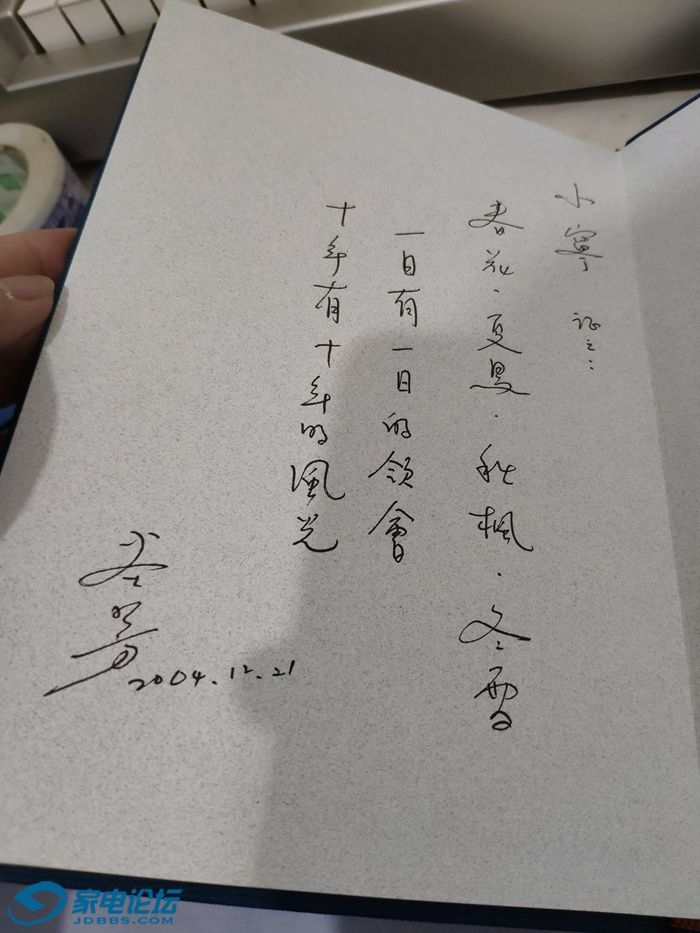 小寧 记之:
春花.夏鳥.秋楓.冬雪
一日有一日的領會
十年有十年的風光
2004.12.21
家电论坛
JDBBS.COM